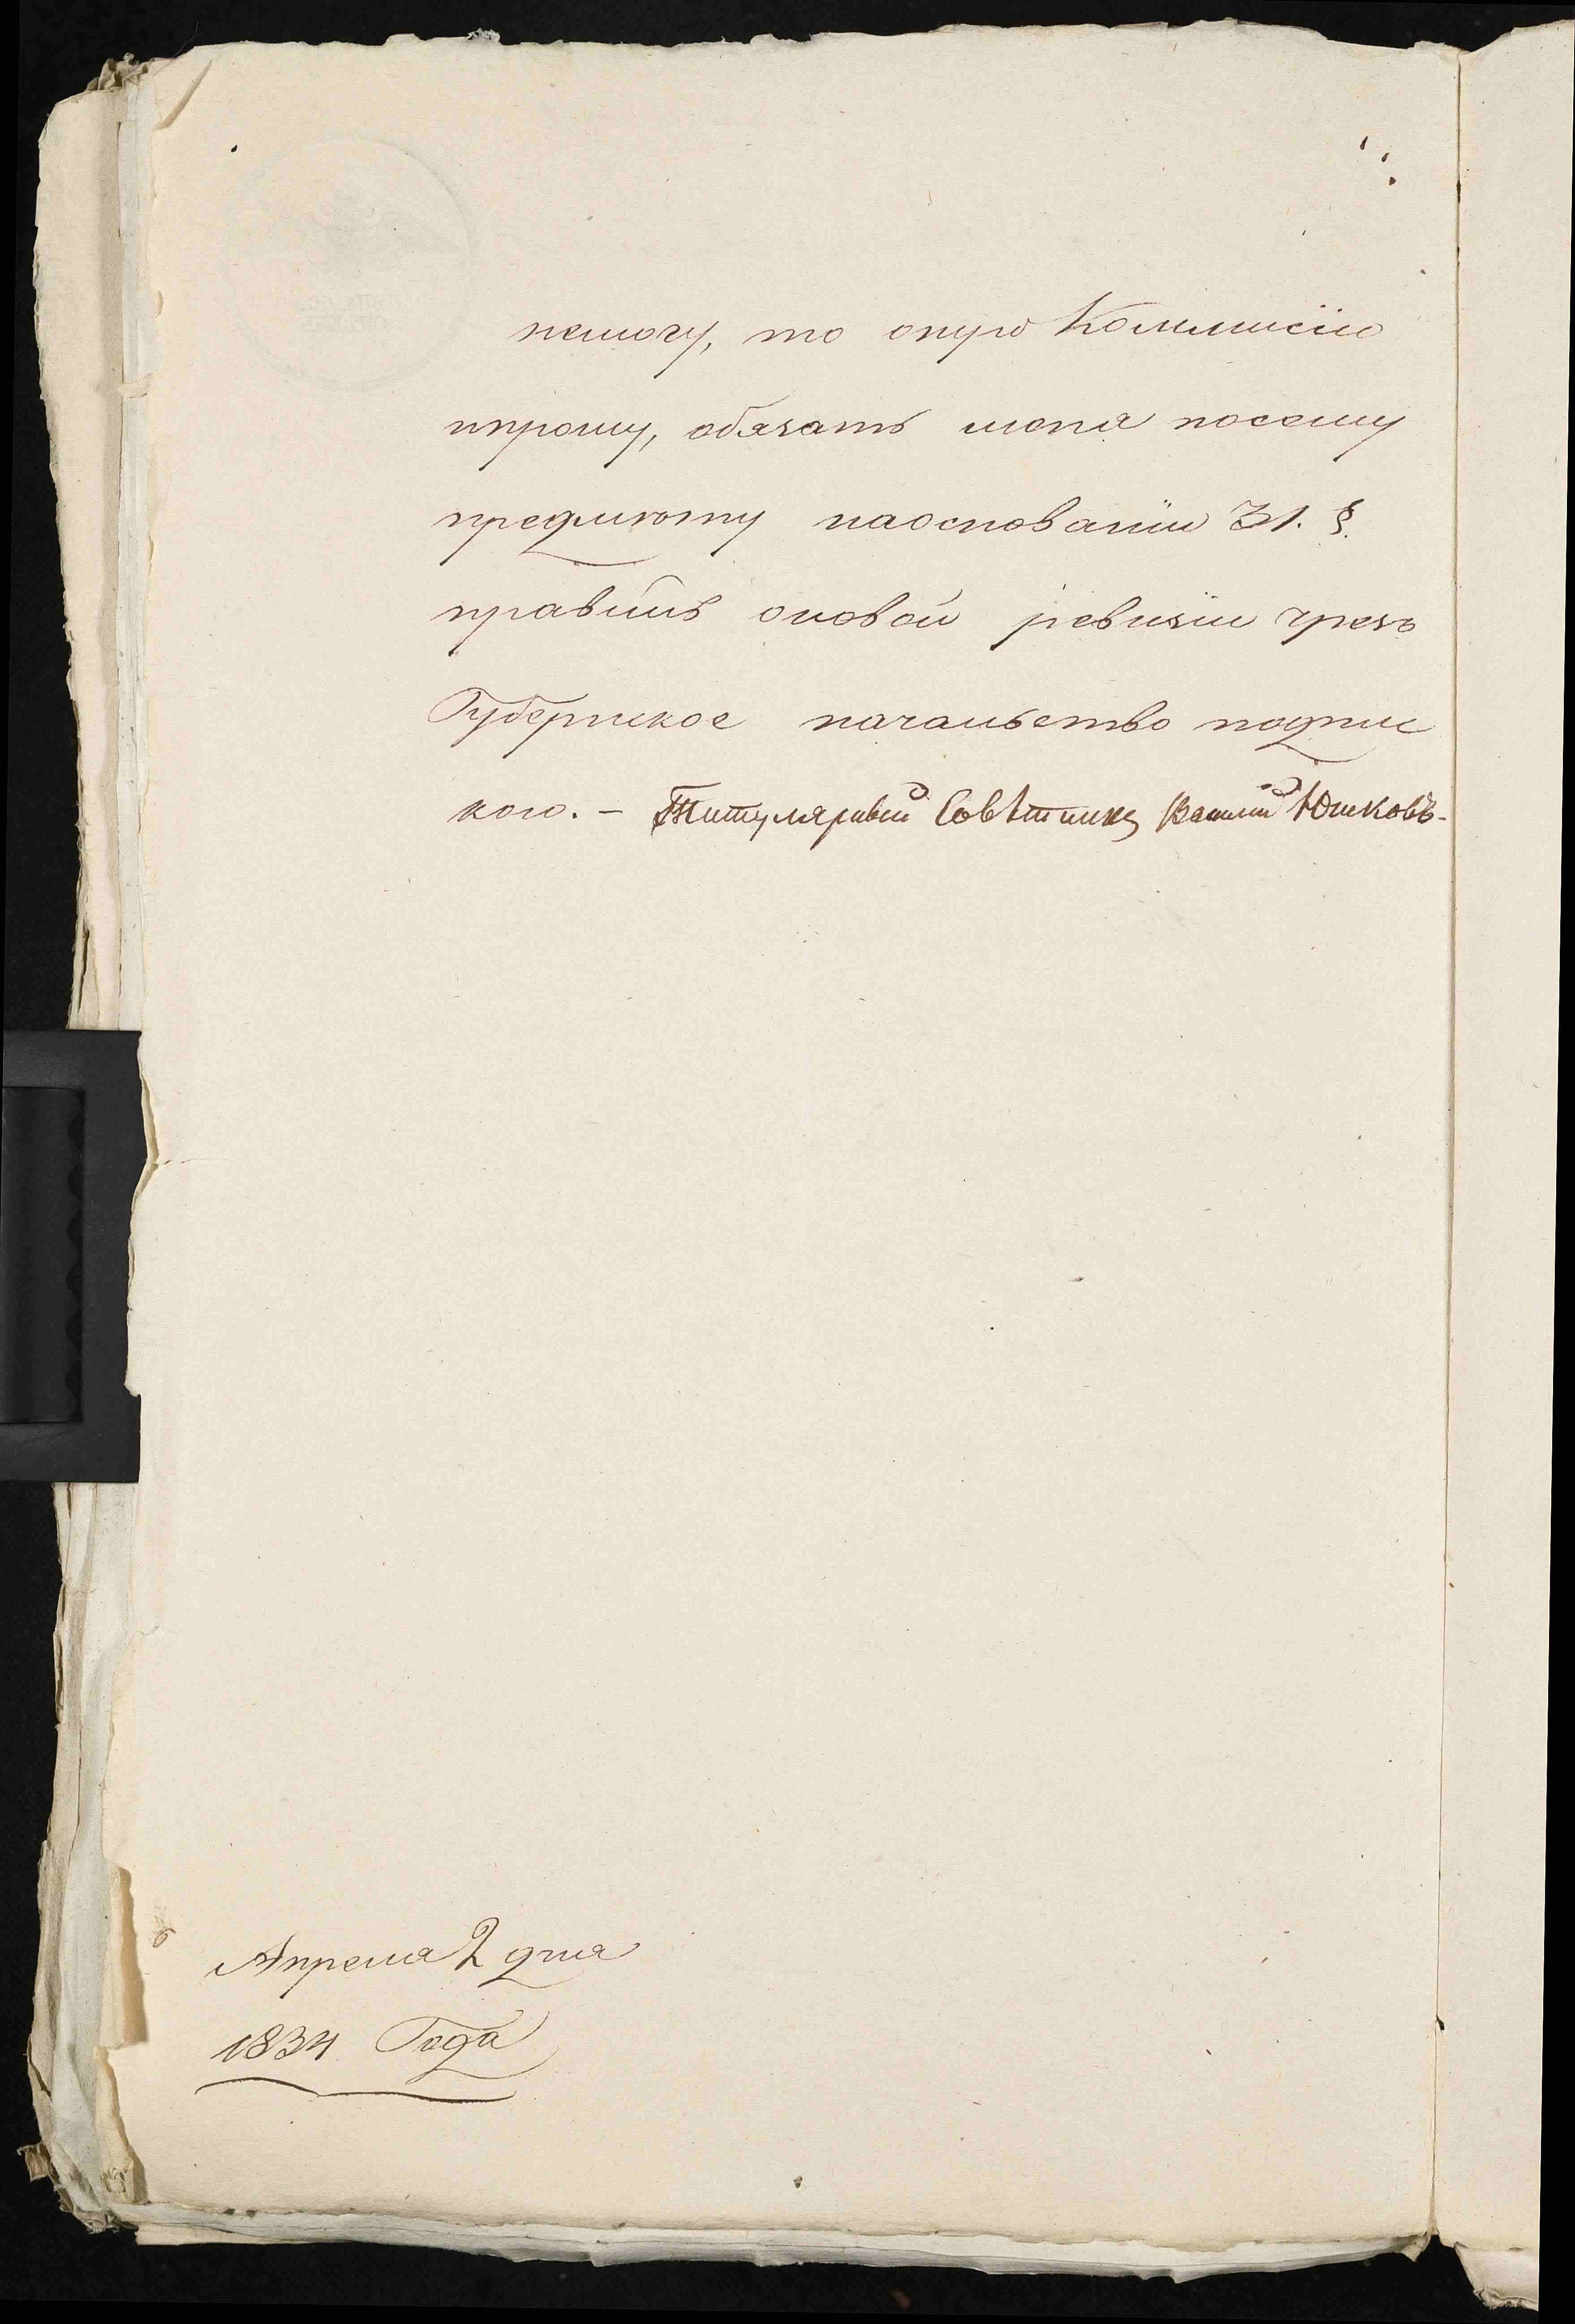 немогу, то оную Коммисію
ипрошу, обязать меня посему
предмѣту наоснованіи 31. §.
правилъ оновой ревизіи чрезъ
Губернское началъство подпис
кою. - Титулярный Совѣтникъ Василій Юшковъ-
Апреля 2 дня
1834 Года